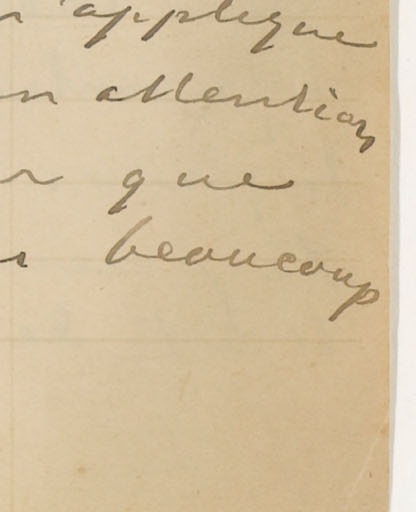 'applique
attention
que
beaucoup